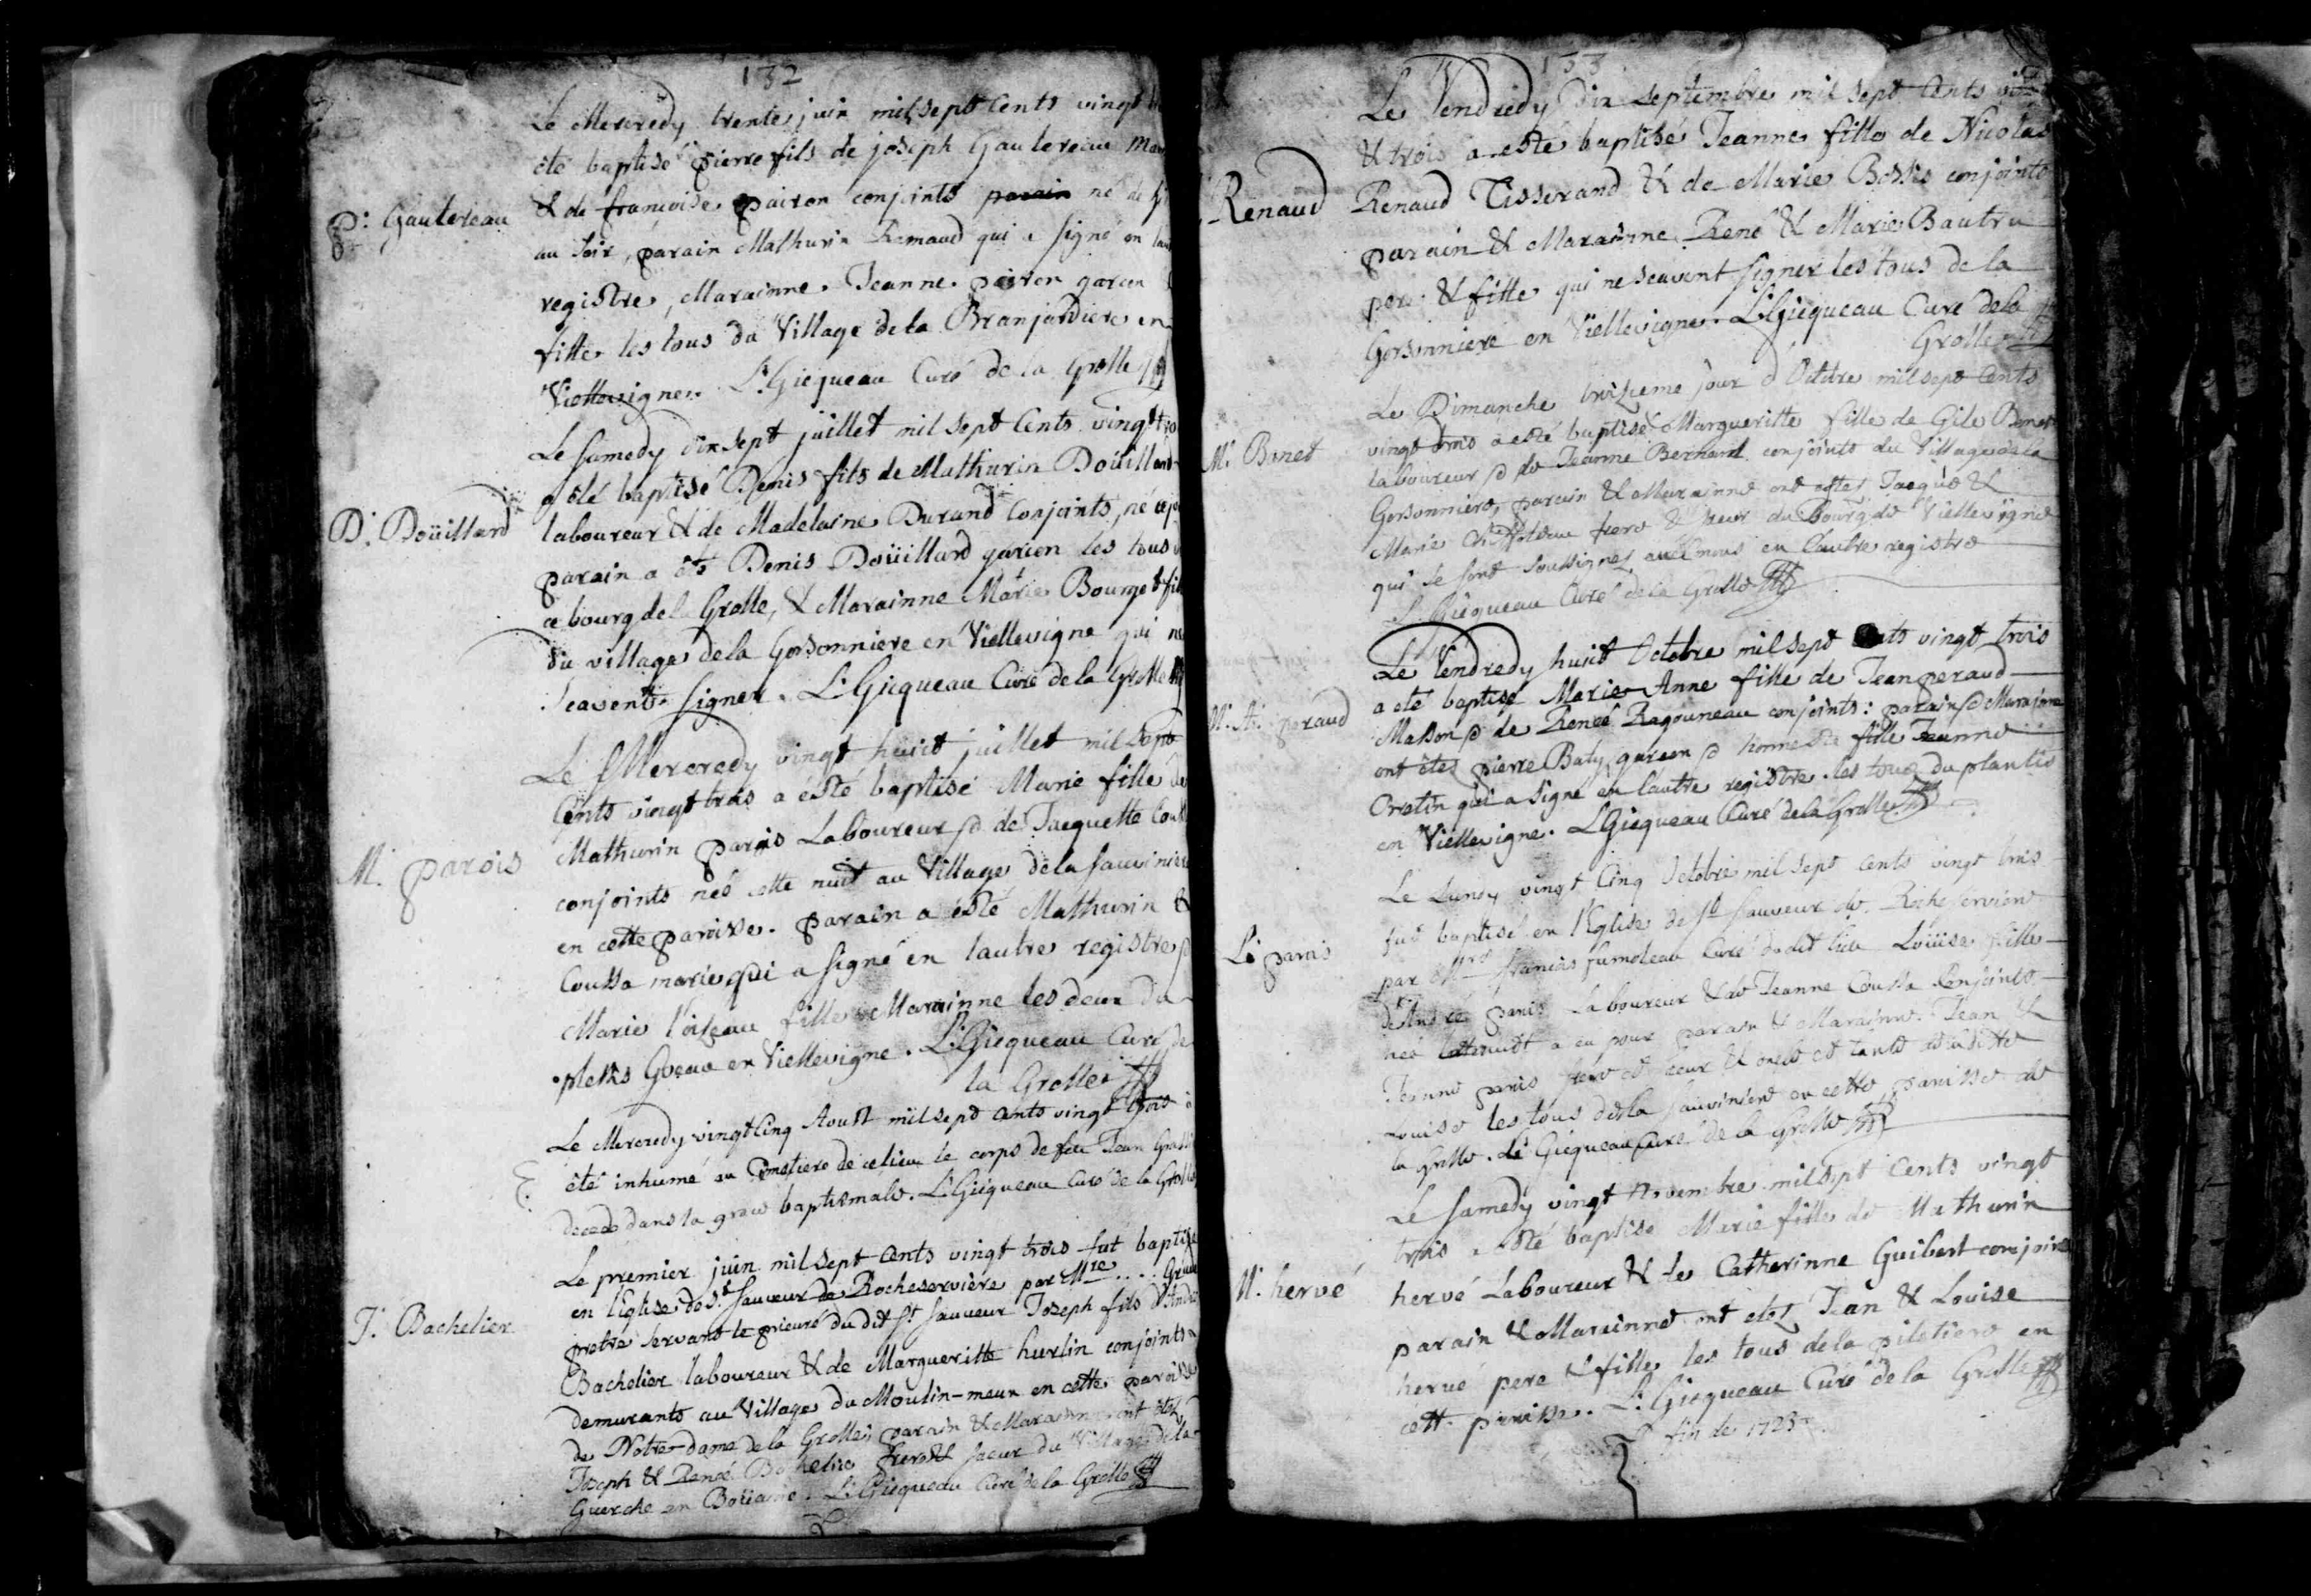 132
Le Mercredy trente juin mil sept Cents vingt
été baptisé pierre fils de joseph Gautereau
P. Gautereau
& de francoise pairon conjoints parain né
au soir, parain Mathurin Renaud qui a signé en
registre, Marainne Jeanne pairon garcon
fille les tous du Village de la Branjardiere en
Viellevigne. L. Gicqueau Curé de la Grolle
Le Samedy dix sept juillet mil sept Cents vingt
a été baptisé Denis fils de Mathurin Doüillard
D. Doüillard
laboureur & de Madelaine Durand Conjoints, né
parain a été Denis Doüillard garcon les tous
ce bourg de la Grolle, & Marainne Marie Bourget
du village de la Gorsonniere en Viellevigne qui ne
scavent signer. L. Gicqueau Curé de la Grolle
Le Mercredy vingt huict juillet mil sept
Cents vingt trois a esté baptisé Marie fille de
Mathurin parois Laboureur & de Jacquette
M. parois
conjoints née cette nuit au Village de la Sauvinière
en cette paroisse. parain a esté Mathurin
Coussa marié, qui a signé en l'autre registre &
Marie l'oizeau fille Marainne les deux du
plessis Gueau en Viellevigne. L. Gicqueau Curé de
la Grolle
Le Mercredy vingt Cinq Aoust mil sept Cents vingt trois a
été inhumé au Cimetiere de ce lieu le corps de feu Jean
decedé dans la grace baptismale. L. Gicqueau Curé de la Grolle
Le premier juin mil sept Cents vingt trois fut baptisé
en l'Eglise de St. Sauveur de Rocheserviere par Mre ....
J. Bachelier
pretre servant le prieuré du dit St Sauveur Joseph fils d'André
Bachelier laboureur & de Margueritte hurlin conjoints
demurants au Village du Moulin-meur en cette paroisse
de Notre-dame de la Grolle, parain & Marainne ont étez
Joseph & Renée Bachelier frere & soeur du Village de la
Guerche en Boüaine. L. Gicqueau Curé de la Grolle
133
Le Vendredy dix Septembre mil sept Cents
& trois a esté baptisé Jeanne fille de Nicolas
Renaud
Renaud Tisserand & de Marie Bossis conjoints
parain & Marainne René & Marie Bautru
pere & fille qui ne scavent signer les tous de la
Gorsonniere en Viellevigne. L. Gicqueau Curé de la
Grolle
Le Dimanche troizieme jour d'Octobre mil sept Cents
vingt trois a esté baptisé Margueritte fille de Gile Binet
M. Binet
laboureur & de Jeanne Bernard conjoints du Village de la
Gorsonniere, parain & Marainne ont estez Jacque &
Marie frere & soeur du Bourg de Viellevigne
qui se sont soussignez avec nous en l'autre registre
L. Gicqueau Curé de la Grolle
Le Vendredy huict Octobre mil sept Cents vingt trois
a eté baptisé Marie-Anne fille de Jean peraud
M. A. peraud
Masson & de Renée Ragouneau conjoints: parain & Marainne
ont étez pierre Baty garcon & honneste fille Jeanne
Cretin qui a signé en l'autre registre. les tous du plantis
en Viellevigne. L. Gicqueau Curé de la Grolle
Le Lundy vingt Cinq Octobre mil sept Cents vingt trois
fut baptisé en l'Eglise de St Sauveur de Rocheserviere
L. parois
par Mre francois fumoleau Curé dudit lieu Loüise fille
d'André parois Laboureur & de Jeanne Coussa Conjoints
née cette nuit a eu pour parain & Marainne Jean &
Jeanne parois frere et soeur & oncle et tante de laditte
Louise les tous de la Sauviniere en cette paroisse de
la Grolle. L. Gicqueau Curé de la Grolle
Le Samedy vingt Novembre mil sept Cents vingt
trois a esté baptisé Marie fille de Mathurin
M. hervé
hervé Laboureur & de Catherinne Guibert conjoints
parain & Marainne ont étez Jean & Louise
hervé pere & fille les tous de la piletiere en
cette paroisse. L. Gicqueau Curé de la Grolle
fin de 1723